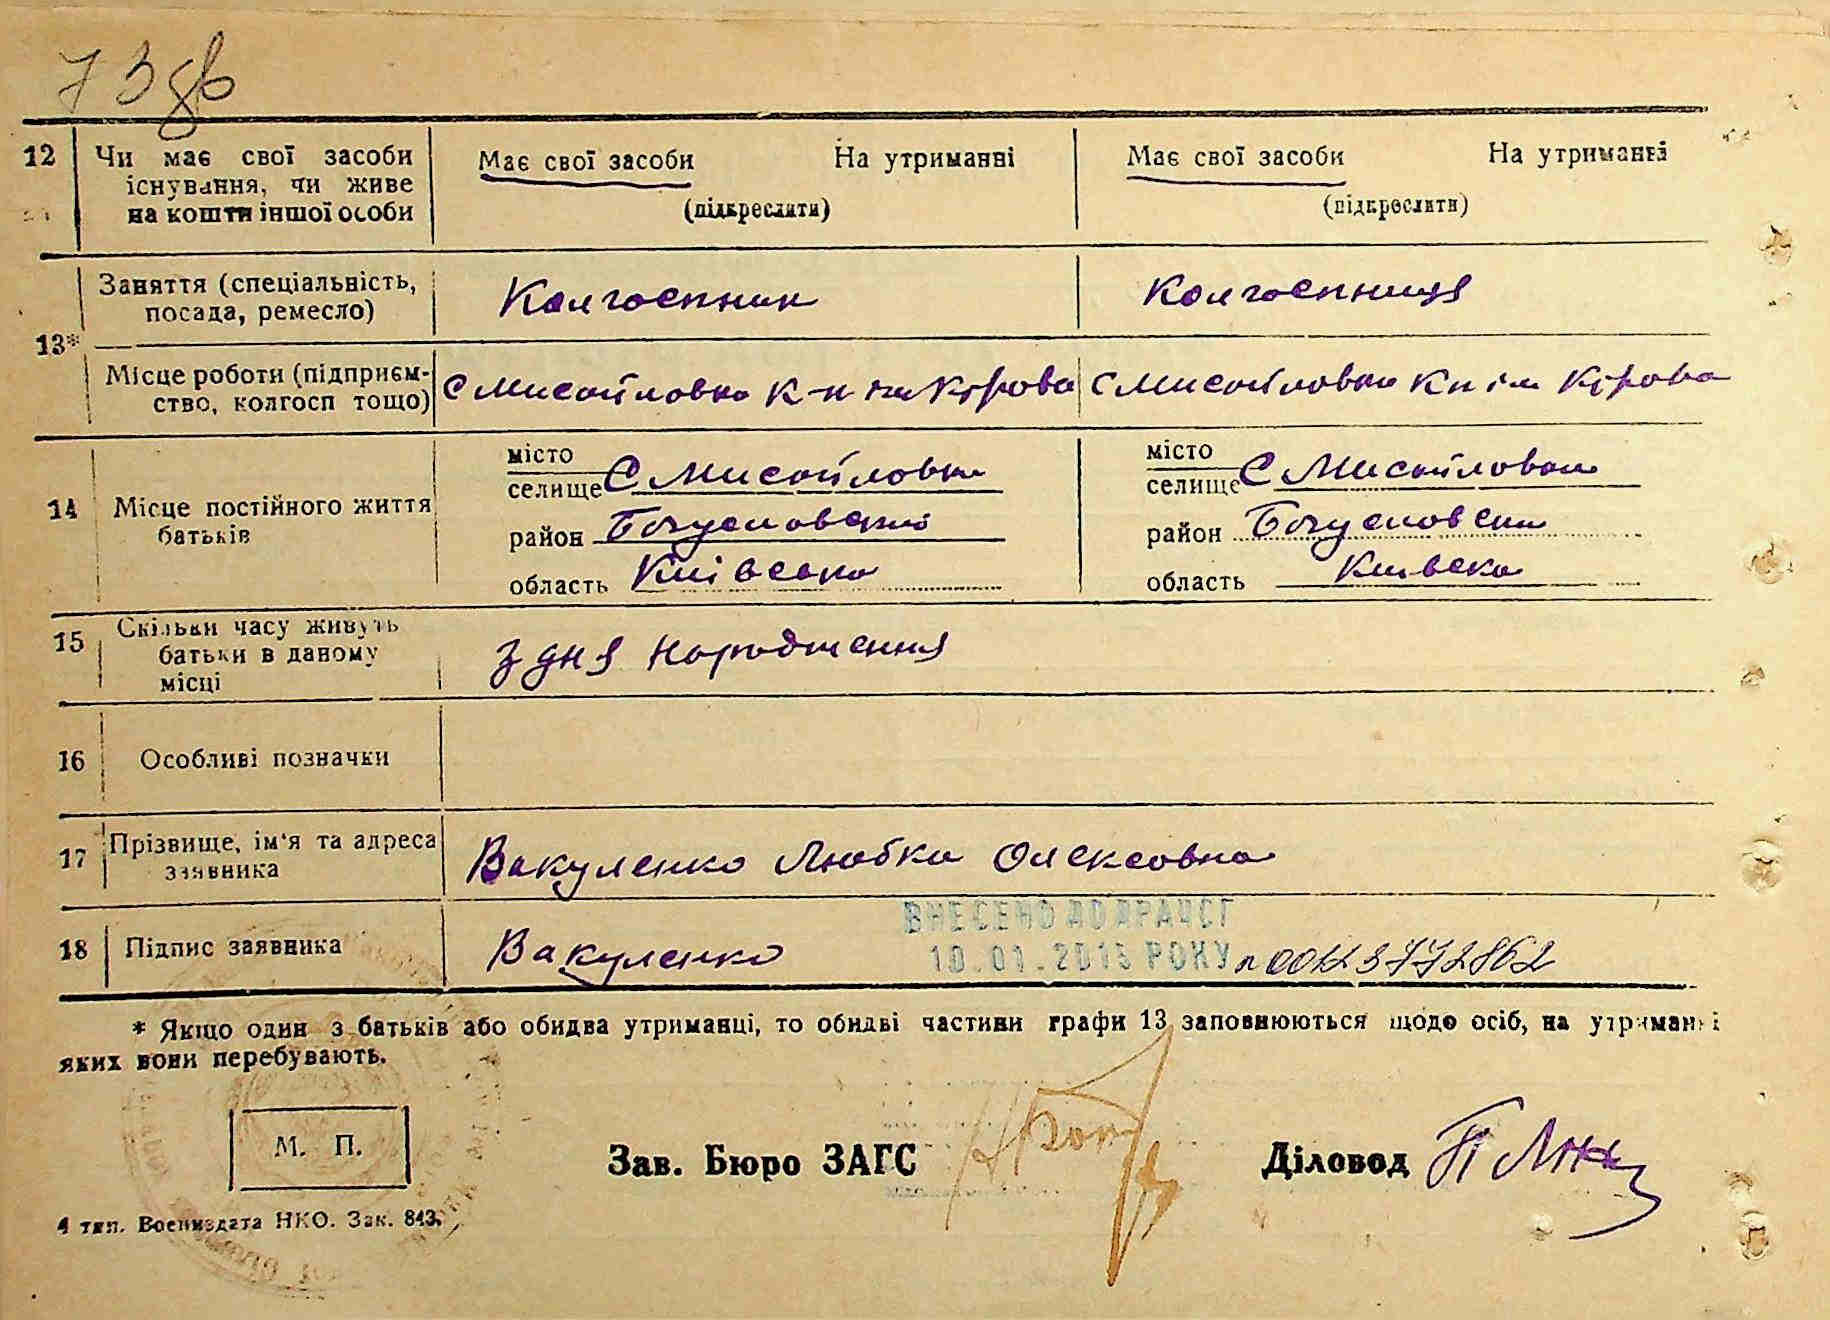 73 зв
12 Чи має свої засоби існування, чи живе на кошти іншої особи
Має свої засоби На утриманні
(підкреслити)
Має свої засоби На утриманні
(підкреслити)
13*
Заняття (спеціальність,
посада, ремесло)
Колгоспник
Колгоспниця
Місце роботи (підприєм-
ство, колгосп тощо)
с Мисайловка к-п ім Кірова
с Мисайловка кп ім Кірова
14 Місце постійного життя
батьків
місто
селище с Мисайловка
район Богуславський
область Київська
місто
селище с Мисайловка
район Богуславськи
область Київска
15 Скільки часу живуть
батьки в даному
місці
З дня народження
16 Особливі позначки
17 Прізвище, ім'я та адреса
заявника
Вакуленко Любка Олексовна
18 Підпис заявника
Вакуленко
ВНЕСЕНО ДО ДРАЦСГ
10.01.2015 РОКУ 3772862
* Якщо один з батьків або обидва утриманці, то обидві частини графи 13 заповнюються щодо осіб, на утриманні
яких вони перебувають.
М. П.
Зав. Бюро ЗАГС
Діловод
4 тип. Воениздата НКО. Зак. 843.